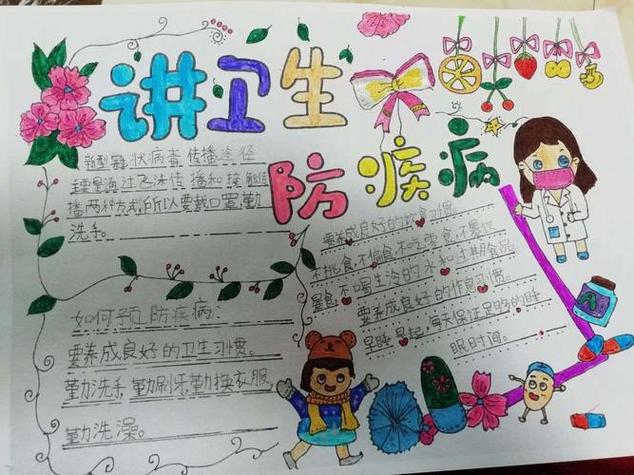 讲卫生
防疾病
新型冠状病毒传播途径
主要是通过飞沫传播和接触传
播两种方式,所以要戴口罩,勤
洗手。
如何预防疾病:
要养成良好的卫生习惯。
勤洗手,勤刷牙,勤换衣服
勤洗澡。
要养成良好的饮食习惯
不挑食,不偏食,不吃零食,不暴饮
暴食,不喝生冷的水和过期食品
要养成良好的作息习惯。
早睡早起,每天保证足够的睡
眠时间。